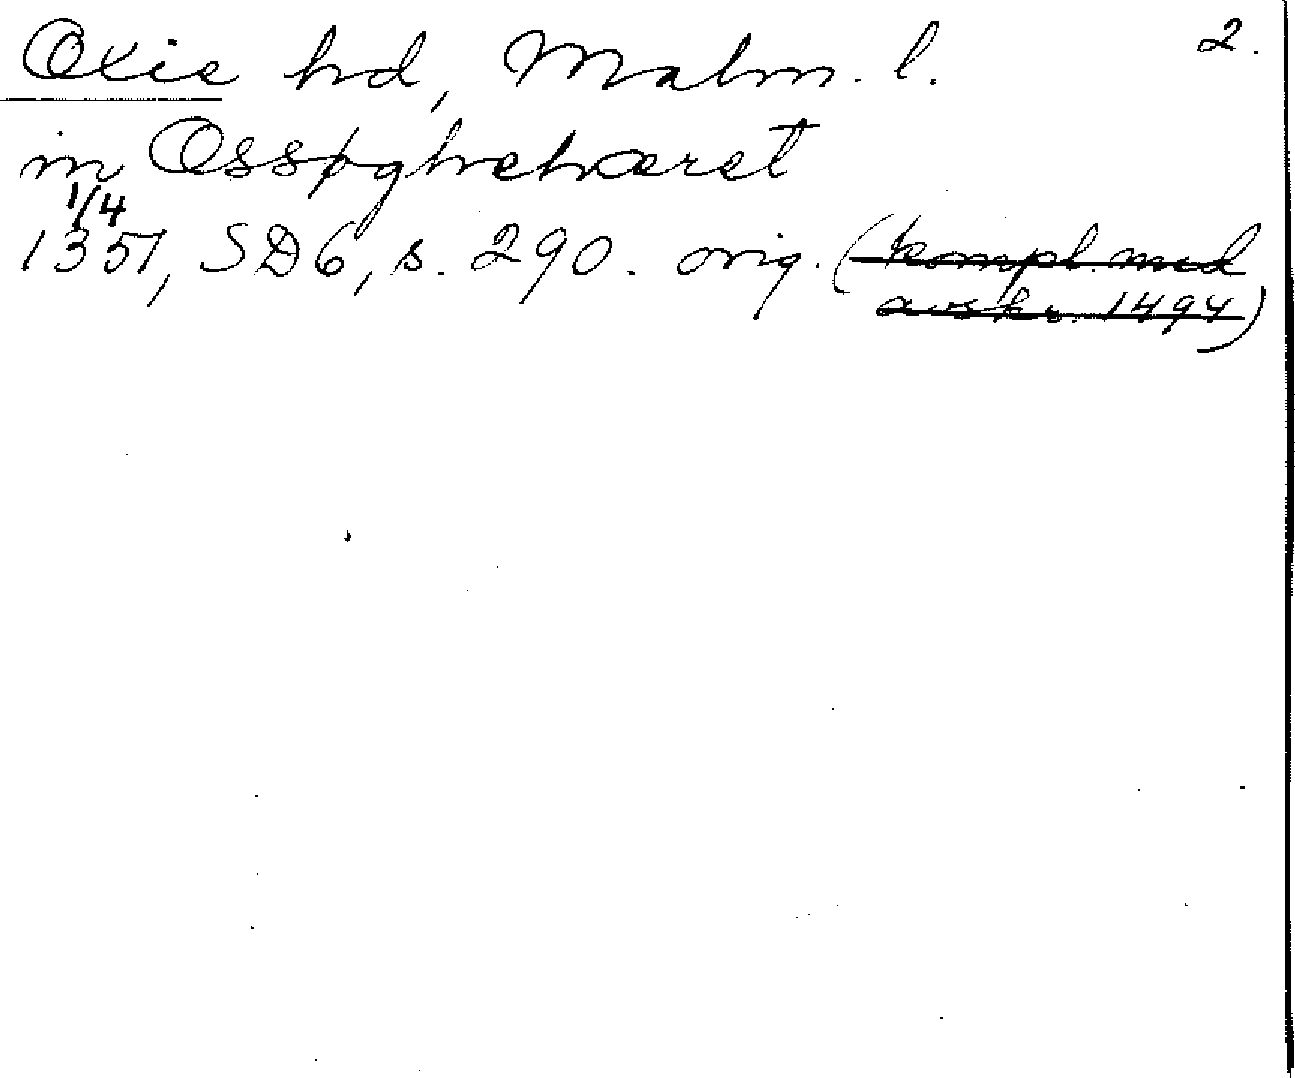 Oxie hd, Malm. l. 2.
in Ossøghrehæret
1/4
1351, SD6, s. 290. orig. (kompl. med
avskr. 1494)